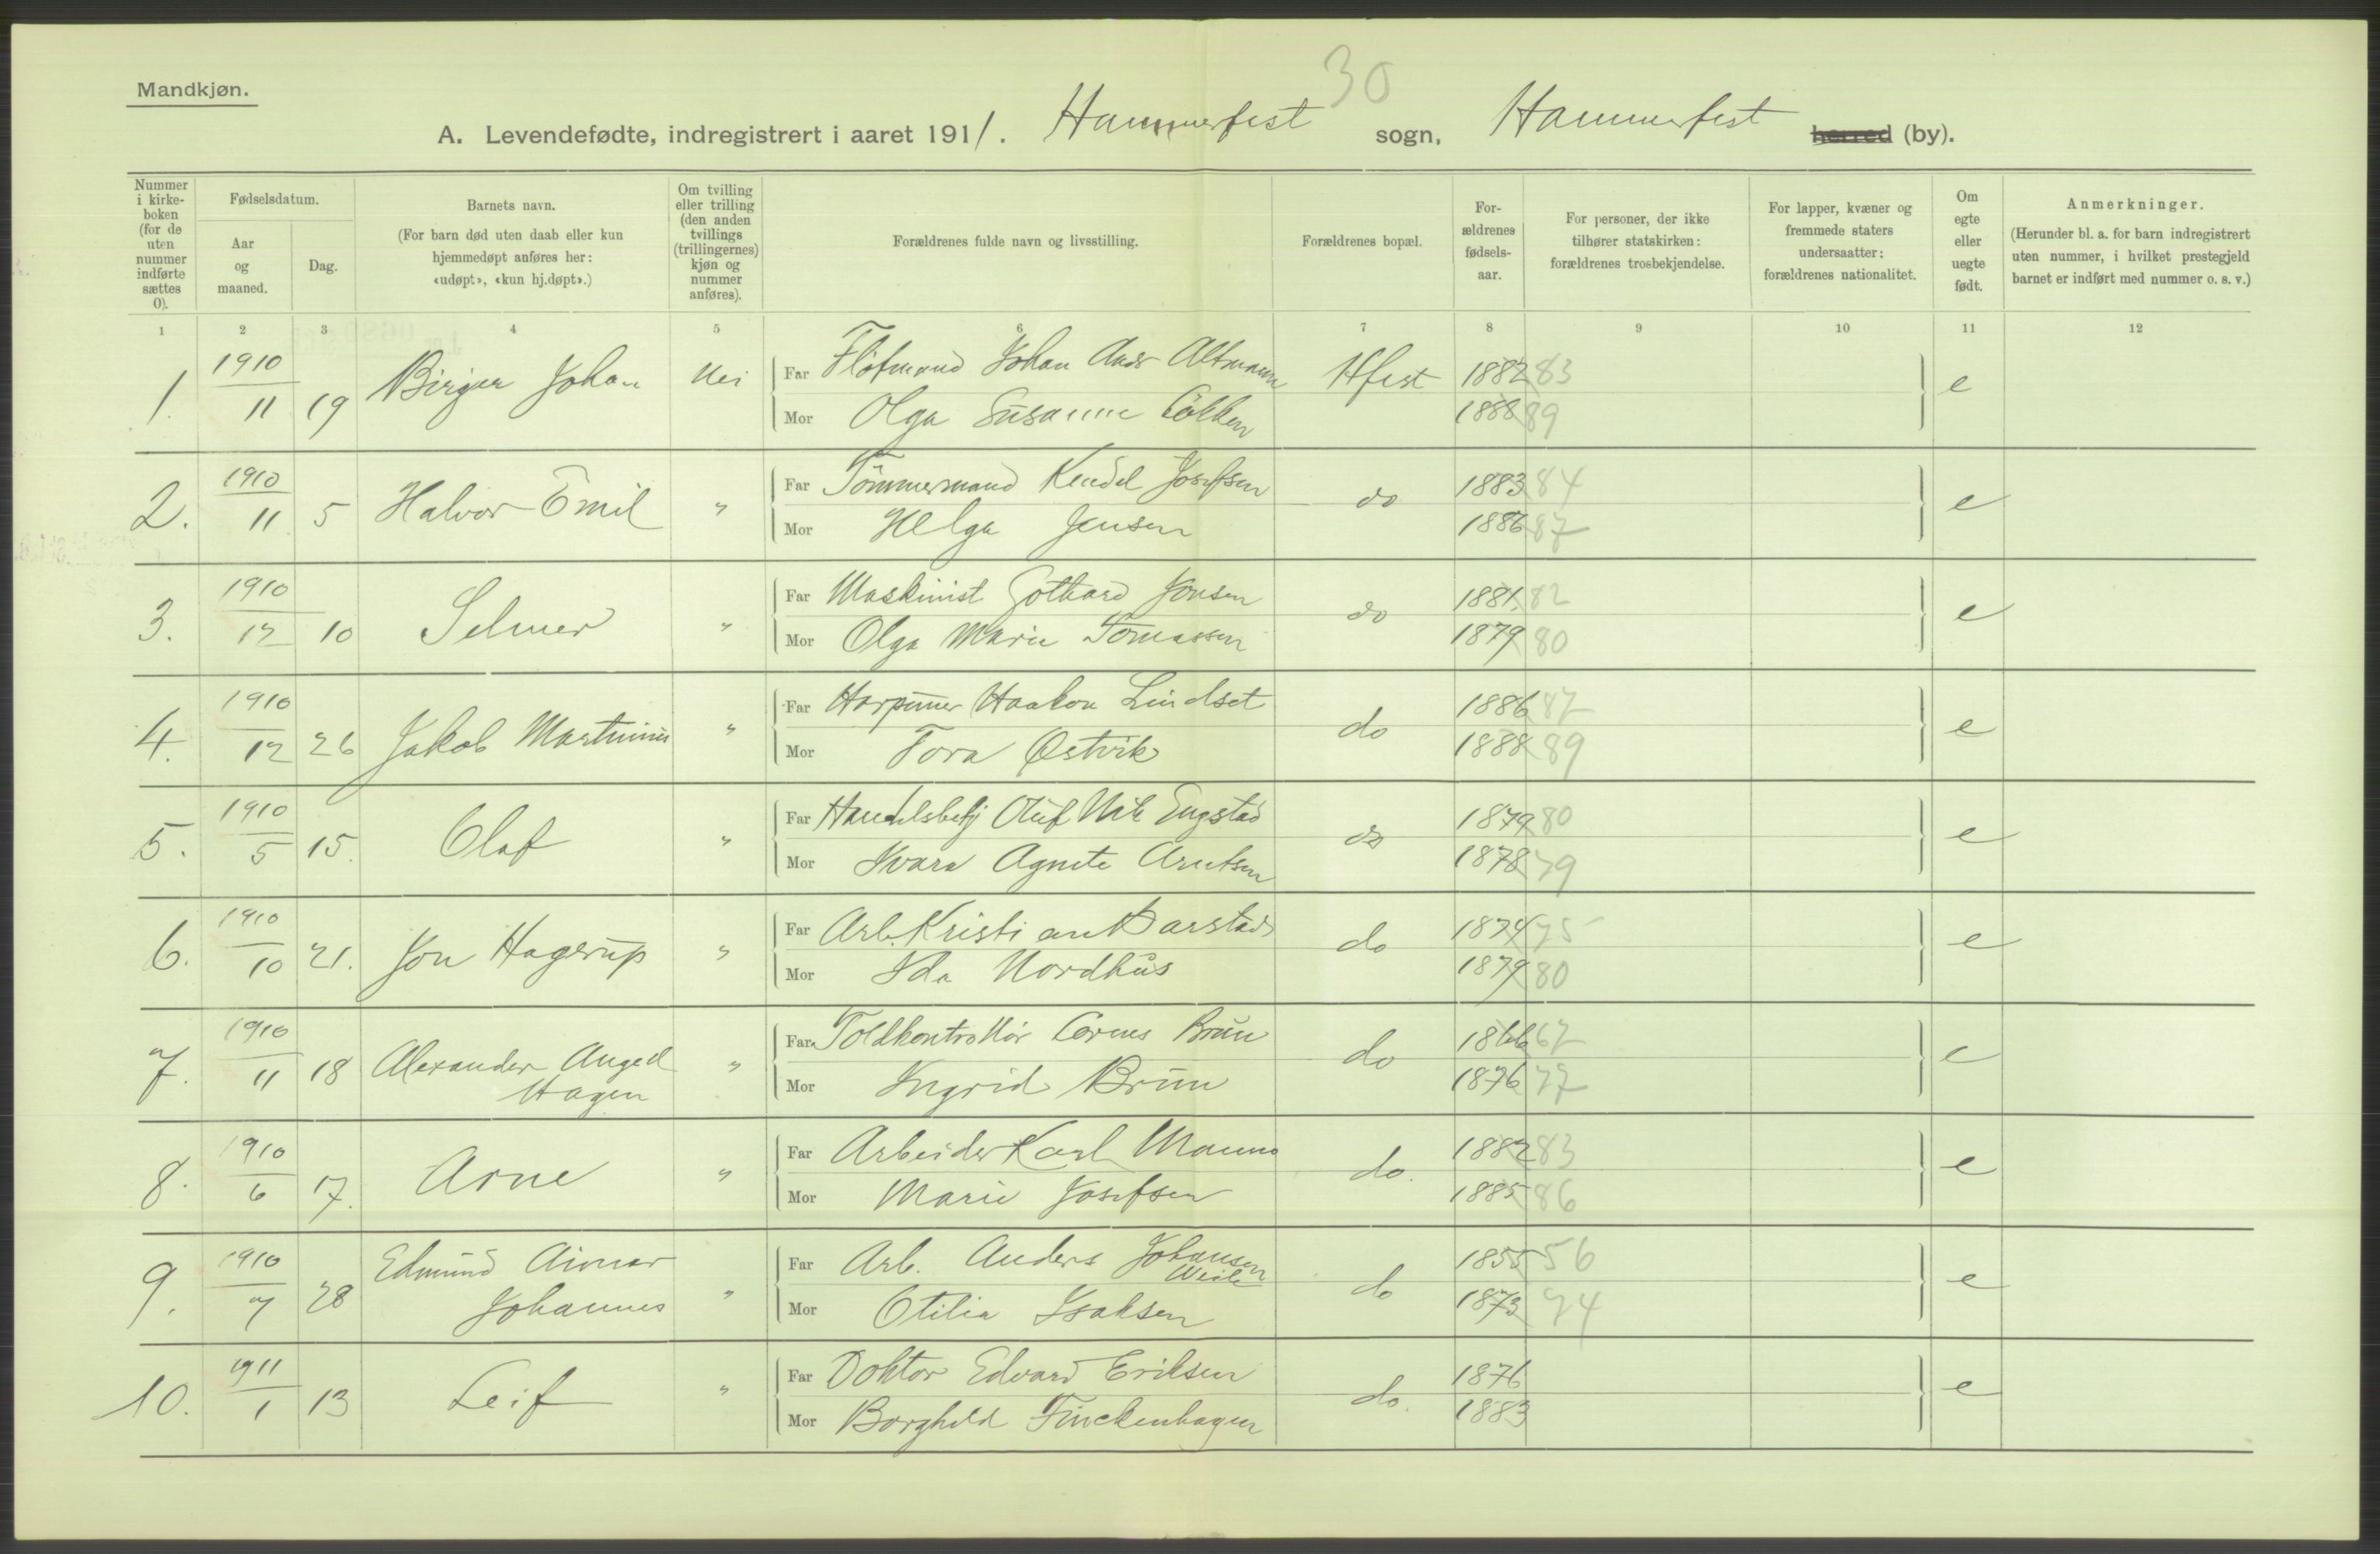 Mandkjøn.
30
A. Levendefødte, indregistrert i aaret 1911. Hammerfest sogn, Hammerfest herred (by).
Nummer i kirke-boken (for de uten nummer indførte sættes 0).
Fødselsdatum.
Aar og maaned.
Dag.
Barnets navn.
(For barn død uten daab eller kun hjemmedøpt anføres her: «udøpt», «kun hj.døpt».)
Om tvilling eller trilling (den anden tvillings (trillingernes) kjøn og nummer anføres).
Forældrenes fulde navn og livsstilling.
Forældrenes bopæl.
For-ældrenes fødsels-aar.
For personer, der ikke tilhører statskirken: forældrenes trosbekjendelse.
For lapper, kvæner og fremmede staters undersaatter: forældrenes nationalitet.
Om egte eller uegte født.
Anmerkninger.
(Herunder bl. a. for barn indregistrert uten nummer, i hvilket prestegjeld barnet er indført med nummer o. s. v.)
1 2 3 4 5 6 7 8 9 10 11 12
1. 1910 11 19 Birger Johan Nei Far Johan Andr Altmann Hfest 1882 83 e
Mor Olga Susanne 1888 89
2. 1910 11 5 Halvor Emil " Far Tömmermand Kendel Josefsen do 1883 84 e
Mor Helga Jensen 1886 87
3. 1910 12 10 Selmer " Far Maskinist Gothard Jonsen do 1881 82 e
Mor Olga Marie Tomassen 1879 80
4. 1910 12 26 Jakob Martinius " Far Harpuner Haakon Lindset do 1886 87 e
Mor Tora Østvik 1888 89
5. 1910 5 15. Olaf " Far Handelsbetj Oluf Engstad do 1879 80 e
Mor Ivara Agnete Arntsen 1878 79
6. 1910 10 21. Jon Hagerup " Far Arb. Kristian Barstad do 1874 75 e
Mor Ida Nordhus 1879 80
7. 1910 11 18 Alexander Angell Hagen " Far Toldkontrollör Brun do 1866 67 e
Mor Ingrid Brun 1876 77
8. 1910 6 17. Arne " Far Arbeider Karl Mauno do. 1882 83 e
Mor Marie Josefsen 1885 86
9. 1910 7 28 Edmund Aimar Johannes " Far Arb. Anders Johansen do 1855 56 e
Mor Otilia Isaksen 1873 74
10. 1911 1 13 Leif " Far Doktor Edvard Eriksen do. 1876 e
Mor Borghild Finckenhagen 1883